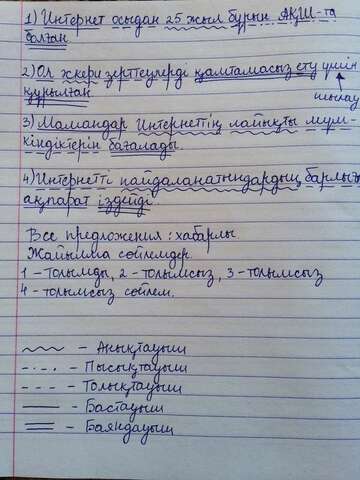 1) Интернет осыдан 25 жыл бұрын АҚШ-та
болған
2) Ол әскери зерттеулерді қамтамасыз ету үшін
құрылған.
шылау
3) Мамандар Интернеттің лайықты мүм-
кіндіктерін бағалады.
4) Интернетті пайдаланатындардың барлығы
ақпарат іздейді
Все предложения: хабарлы
Жайылма сөйлемдер.
1 - толымды, 2 - толымсыз, 3 - толымсыз
4 - толымсыз сөйлем.
- Анықтауыш
- Пысықтауыш
- Толықтауыш
- Бастауыш
- Баяндауыш